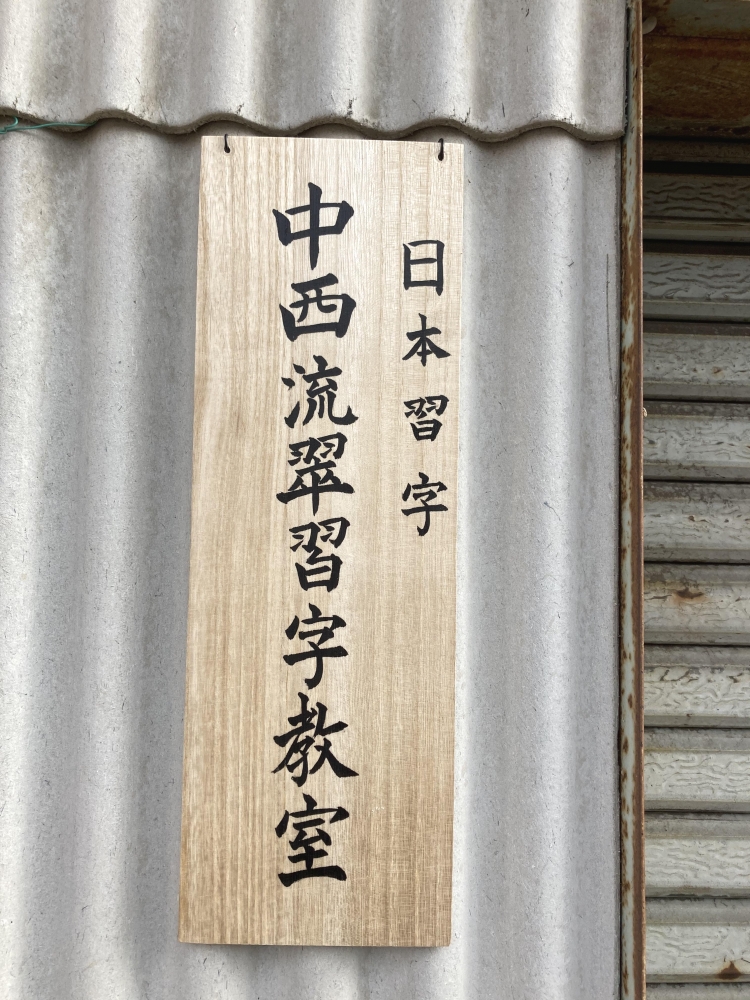 日本習字
中西流翠習字教室